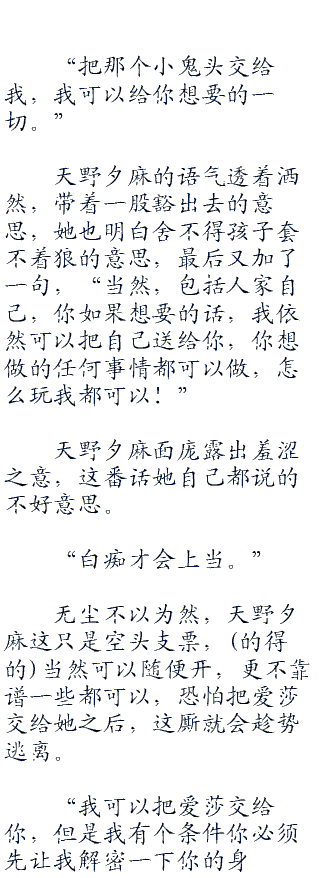 “把那个小鬼头交给
我，我可以给你想要的一
切。”
天野夕麻的语气透着洒
然，带着一股豁出去的意
思，她也明白舍不得孩子套
不着狼的意思，最后又加了
一句，“当然，包括人家自
己，你如果想要的话，我依
然可以把自己送给你，你想
做的任何事情都可以做，怎
么玩我都可以！”
天野夕麻面庞露出羞涩
之意，这番话她自己都说的
不好意思。
“白痴才会上当。”
无尘不以为然，天野夕
麻这只是空头支票，(的得
的)当然可以随便开，更不靠
谱一些都可以，恐怕把爱莎
交给她之后，这厮就会趁势
逃离。
“我可以把爱莎交给
你，但是我有个条件你必须
先让我解密一下你的身